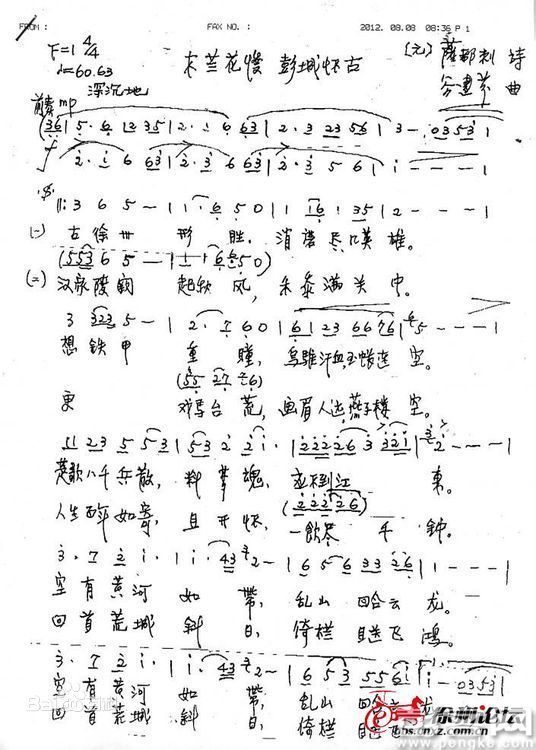 FROM : FAX NO. : 2012. 08.08 08:36 P 1
F=1 4/4
♩=60.63
木兰花慢 彭城怀古
(元) 萨都剌 诗
谷建芬 曲
深沉地
前奏 mp
(36 | 5· 6 12 35 | 2· 1 6 63 | 2· 3 23 56 | 3 - 0353 |
f 2· i 6 63 | 2· 3 6 63 | 2· 3 5 6 | i - - - |
||: 3 6 5 - | 1 1· 6 5 0 | 1 16 1 35 | 2 - - - |
(一) 古徐州 形胜, 消磨尽几英雄。
(553 6 5 - | 1 1 6 5 0)
(二) 汉家陵阙 起秋风, 禾黍满关中。
3 323 5 - | 2· 7 6 0 | 6 1 23 66 76 | 5 - - - |
想铁甲 重瞳, 乌骓汗血,玉帐连空。
(55 27 6)
更 戏马台荒, 画眉人远,燕子楼空。
11 23 5 53 | 53 2 2 i· | 22226 3 32i | 2 - - - |
楚歌八千兵散, 料梦魂, 应不到江东。
(222 26)
人生百年如寄, 且开怀, 一饮尽千钟。
3· 7 2 i· | 1 i· 43 2 - | 1 6 5 6 33 26 | 1 - - - |
空有黄河 如带, 乱山回合云龙。
回首荒城 斜日, 倚栏目送飞鸿。
3· 7 2 i· | 1 i· 43 2 - | 1 6 53 55 6i | i - 0353 |
空有黄河 如带, 乱山回合云龙
回首荒城 斜日, 倚栏目送
Bai 百科
徐州论坛
bbs.cnxz.com.cn